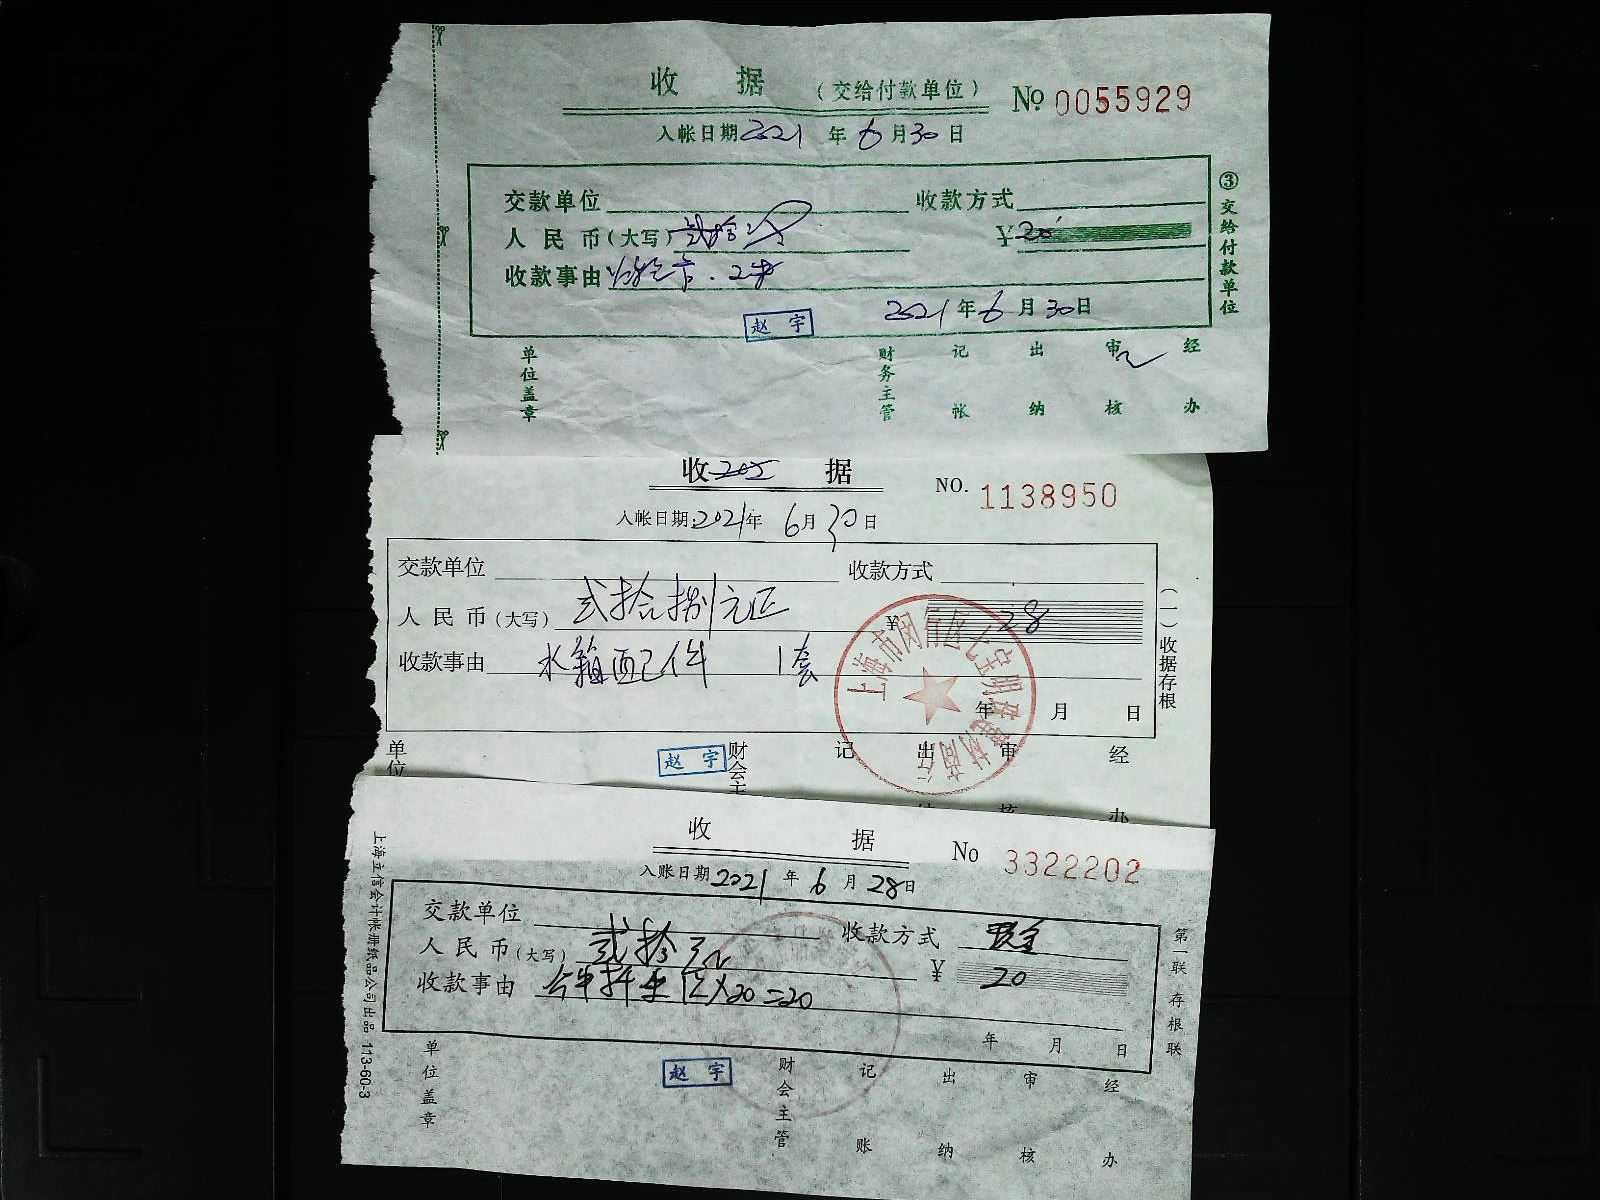 收 据 （交给付款单位） No 0055929
入帐日期 2021 年 6 月 30 日
交款单位 收款方式
人民币（大写）贰拾 ¥ 20
收款事由
2021 年 6 月 30 日
赵宇
单位盖章 财务主管 记帐 出纳 审核 经办
③交给付款单位
收 据 NO. 1138950
入帐日期: 2021 年 6 月 30 日
交款单位 收款方式
人民币（大写）贰拾捌元正 ¥ 28
收款事由 水箱配件 1套
年 月 日
赵宇
单位 财会主 记 出纳 审核 经办
（一）收据存根
上海市闵行区七宝明
收 据 No 3322202
入账日期 2021 年 6 月 28 日
交款单位 收款方式 现金
人民币（大写）贰拾元 ¥ 20
收款事由 X20=20
年 月 日
赵宇
单位盖章 财会主管 记账 出纳 审核 经办
第一联 存根联
上海立信会计帐册纸品公司出品 113-60-3